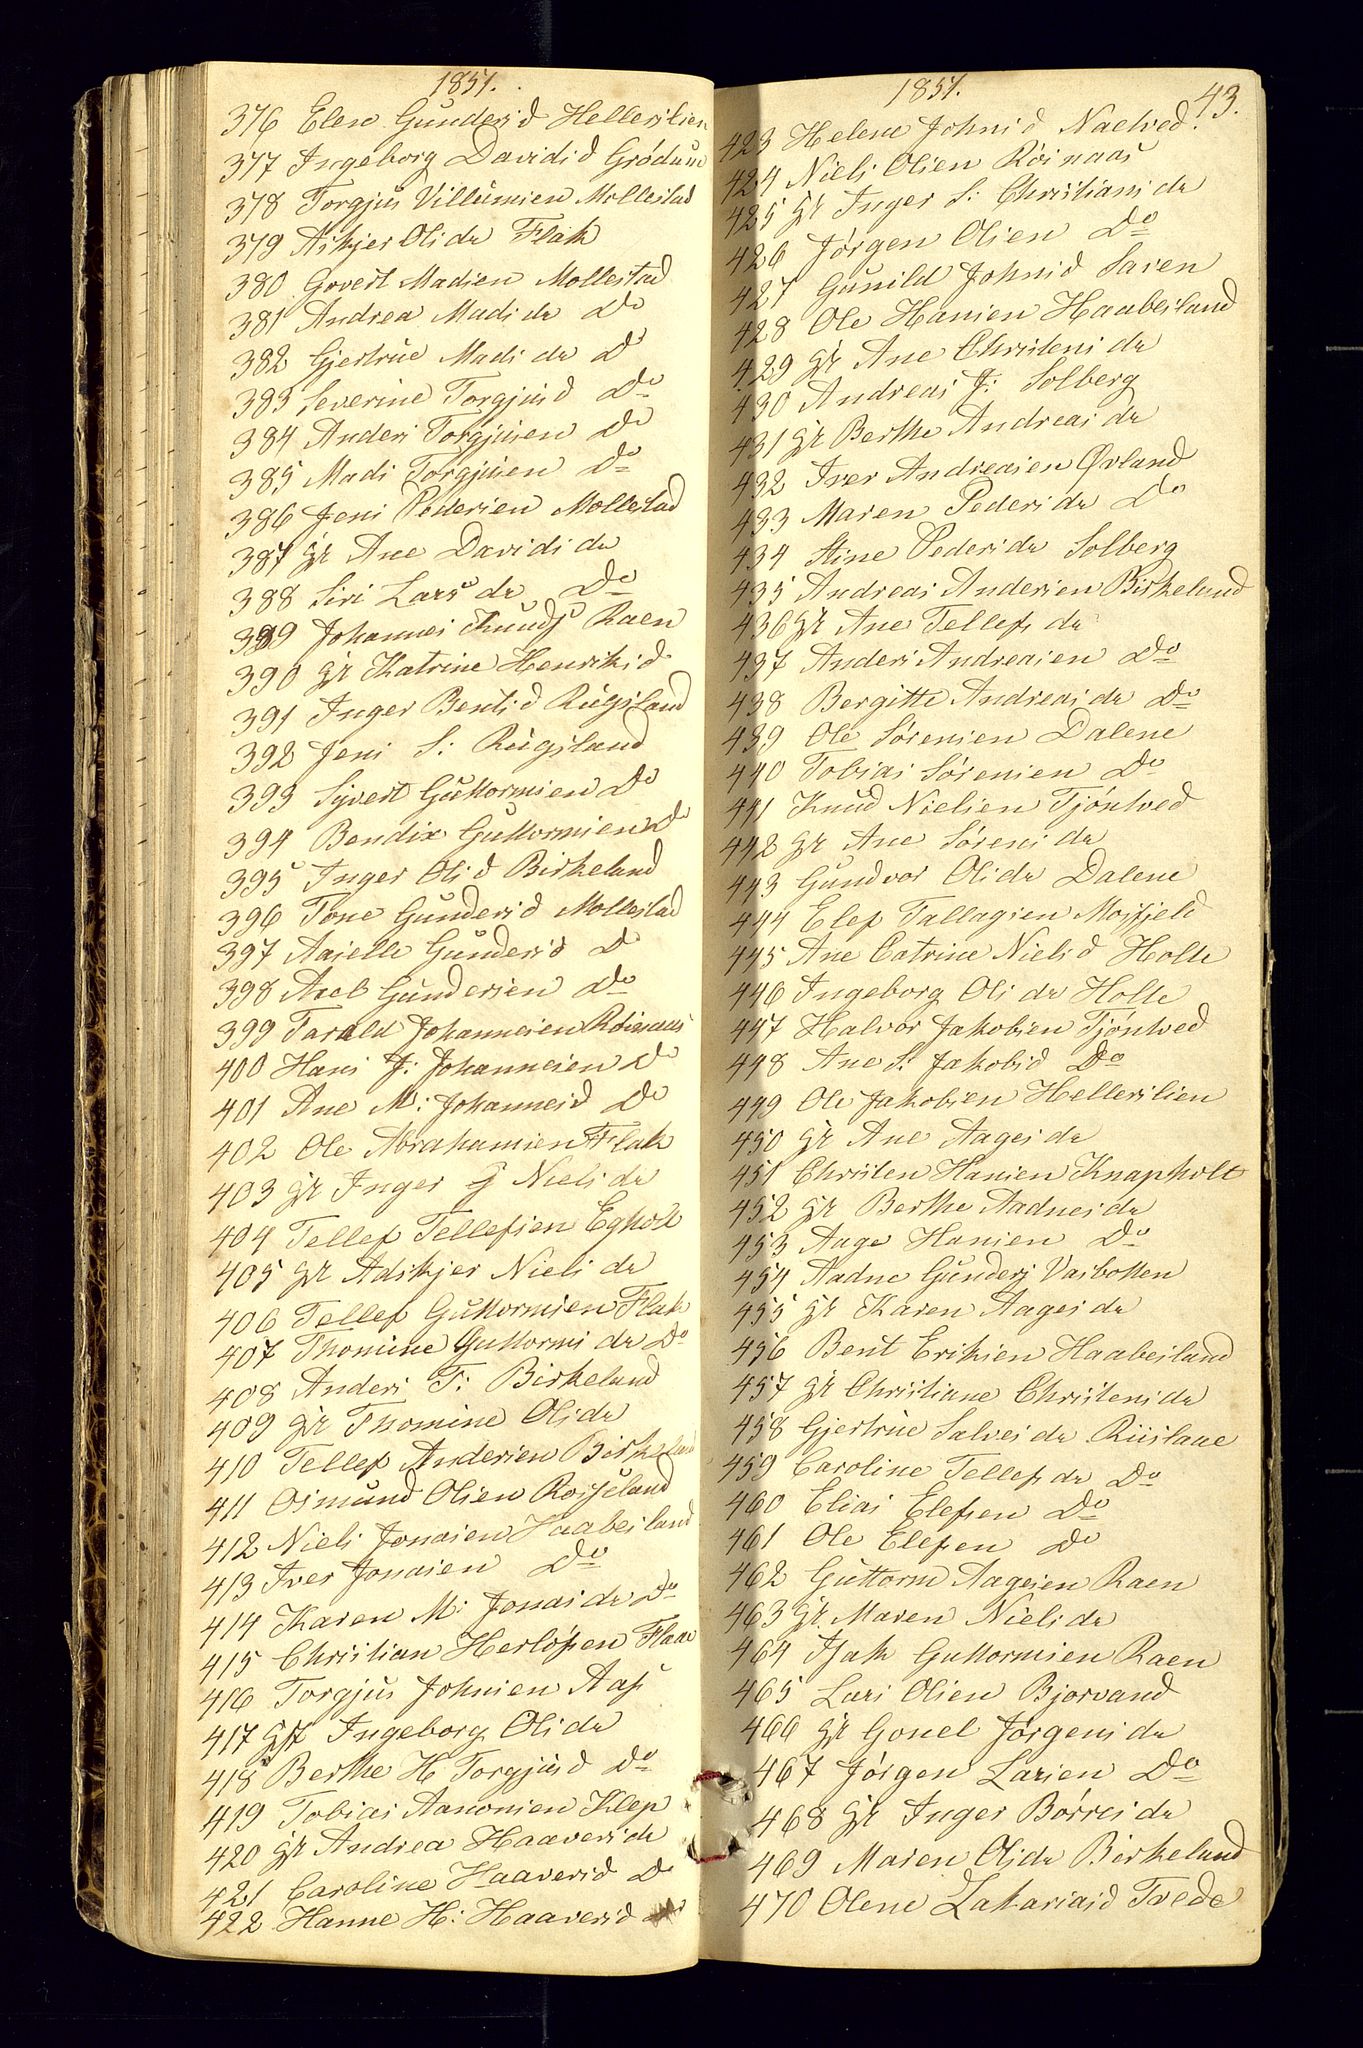 1851.
376 Elen Gundersd Hellerslien
377 Ingeborg Davidsd Grødum
378 Torgjus Villumsen Mollestad
379 Askjer Olsdr Flak
380 Govert Madsen Mollestad
381 Andrea Madsdr Do
382 Gjertrue Madsdr Do
383 Severine Torgjusd Do
384 Anders Torgjusen Do
385 Mads Torgjusen Do
386 Jens Pedersen Mollestad
387 gr Ane Davidsdr
388 Siri Larsdr Do
389 Johannes Knuds Raen
390 gr Katrine Henriksd
391 Inger Bentsd Rugsland
392 Jens S: Rugsland
393 Syvert Guttormsen Do
394 Bendix Guttormsen Do
395 Inger Olsd Birkeland
396 Tone Gundersd Mollestad
397 Aaselle Gundersd Do
398 Axel Gundersen Do
399 Tarald Johannesen Roinaas
400 Hans J: Johannesen Do
401 Ane M: Johannesd Do
402 Ole Abrahamsen Flak
403 gr Inger G Nielsdr
404 Tellef Tellefsen Egholt
405 gr Adskjer Nielsdr
406 Tellef Guttormsen Flak
407 Thomine Guttormsdr Do
408 Anders T: Birkeland
409 gr Thomine Olsdr
410 Tellef Andersen Birkeland
411 Osmund Olsen Rosseland
412 Niels Jonasen Haabesland
413 Iver Jonasen Do
414 Karen M: Jonasdr Do
415 Christian Herlofsen Flaae
416 Torgjus Johnsen Aas
417 gft Ingeborg Olsdr
418 Berthe H Torgjusd Do
419 Tobias Aanonsen Klep
420 gr Andrea Haaversdr
421 Caroline Haaversd Do
422 Hanne H: Haaversd Do
1851.
43.
423 Helene Johnsd Naelved.
424 Niels Olsen Röinaas
425 gr Inger S: Christiansdr
426 Jörgen Olsen Do
427 Gunild Johnsd Saren
428 Ole Hansen Haabesland
429 gr Ane Christensdr
430 Andreas J: Solberg
431 gr Berthe Andreasdr
432 Iver Andreasen Øvland
433 Maren Pedersdr Do
434 Stine Pedersdr Solberg
435 Andreas Andersen Birkeland
436 gr Ane Tellefsdr
437 Anders Andreasen Do
438 Bergitte Andreasdr Do
439 Ole Sörensen Dalene
440 Tobias Sörensen Do
441 Knud Nielsen Tjöntved
442 gr Ane Sörensdr
443 Gundvor Olsdr Dalene
444 Elef Tallagsen Mosfjeld
445 Ane Catrine Nielsd Holte
446 Ingeborg Olsdr Holte
447 Halvor Jakobsen Tjöntved
448 Ane S: Jakobsd Do
449 Ole Jakobsen Hellerslien
450 gr Ane Aagesdr
451 Christen Hansen Knapholt
452 gr Berthe Aadnesdr
453 Aage Hansen Do
454 Aadne Gunders Vasbotten
455 gr Karen Aagesdr
456 Bent Eriksen Haabesland
457 gr Christiane Christensdr
458 Gjertrue Salvesdr Riislane
459 Caroline Tellefsdr Do
460 Elias Elefsen Do
461 Ole Elefsen Do
462 Guttorm Aagesen Raen
463 gr. Maren Nielsdr
464 Isak Guttormsen Raen
465 Lars Olsen Bjorvand
466 gr Gonel Jörgensdr
467 Jörgen Larsen Do
468 gr Inger Börresdr
469 Maren Olsdr Birkeland
470 Olene Zakariasd Tvede